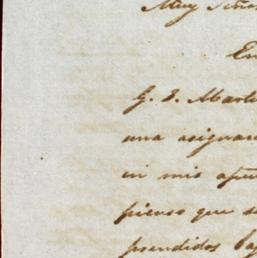 Muy Seño
En
G. S. Mart
una asignan
in mis apu
pienso que s
prendidos baj